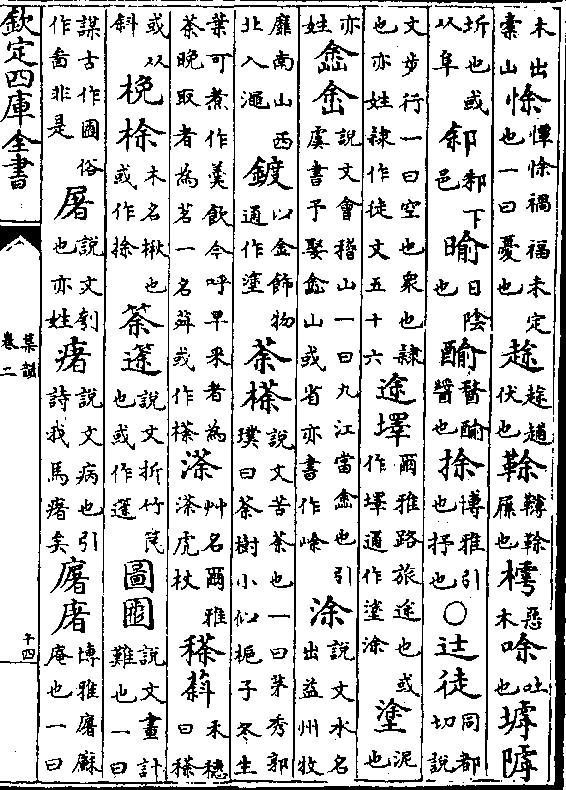 木出橐山悇憛悇禍福未定也一曰憂也䞮䞮趙伏也䩣䩯䩣屧也樗惡木唋吐也㙤㻯
圻也或从阜䣄邾下邑㬰日陰也䣷䤅䣷醬也捈博雅引也抒也○𨑒徒同都切說
文步行一曰空也衆也隷也亦姓隸作徒文五十六途墿爾雅路旅途也或作墿通作塗涂塗泥也
亦姓嵞峹說文會稽山一曰九江當嵞也引虞書予娶嵞山或省亦書作峹涂說文水名出益州牧
靡南山西北入澠鍍以金飾物通作塗荼𣘻說文苦荼也一曰茅秀郭璞曰荼樹小似梔子冬生
葉可煮作羹飲今呼早采者為荼晚取者為茗一名荈或作𣘻蒤艸名爾雅蒤虎杖䅷䔑禾穗曰䅷
或从斜梚梌木名楸也或作捈筡𥰞說文折竹笢也或作𥰞圖圗說文畫計難也一曰
謀古作圗俗作啚非是屠說文刳也亦姓瘏說文病也引詩我馬瘏矣廜𢊍博雅廜㢝庵也一曰
欽定四庫全書
集韻
卷二
十四